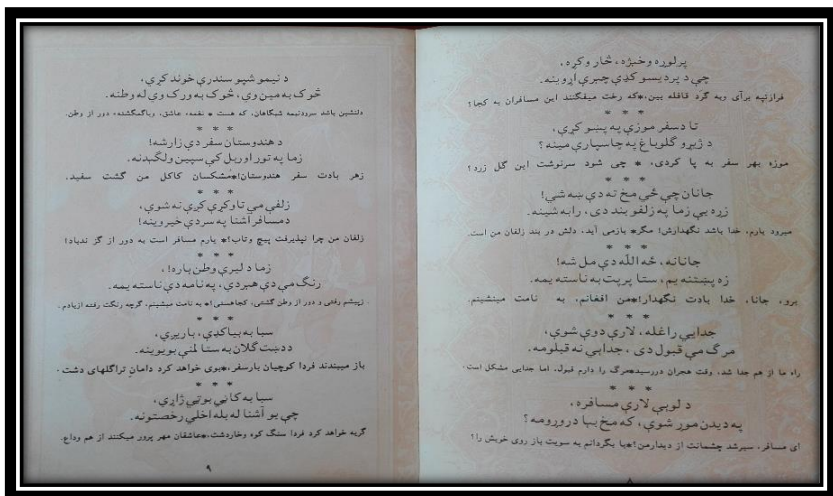 پرلوړه وخېژه، څار وکړه،
چې د پردیسو کډې چېرې اړوینه.
فرازتپه برآی وبه گرد قافله بین،*که رخت میفکنند این مسافران به کجا؟
* * *
تا د سفر موزې په پښو کړې،
د ژیړو گلو باغ په چا سپارې مینه؟
موزه بهر سفر به پا کردی، * چی شود سرنوشت این گل زرد؟
* * *
جانان چې ځي مخ ته دې ښه شي!
زړه یې زما په زلفو بند دی، رابه شینه.
میرود یارم، خدا باشد نگهدارش! مگر* بازمی آید، دلش در بند زلفان من است.
* * *
جانانه، ځه الله دې مل شه!
زه پښتنه یم، ستا پرپت به ناسته یمه.
برو، جانا، خدا بادت نگهدار!*من افغانم، به نامت مینشینم.
* * *
جدایي راغله، لارې دوې شوې،
مرگ مې قبول دی، جدایي نه قبلومه.
راه ما از هم جدا شد، وقت هجران دررسید*مرگ را دارم قبول، اما جدایی مشکل است.
* * *
د لوېې لارې مسافره،
په دیدن موړ شوې، که مخ بیا دروړومه؟
ای مسافر، سیرشد چشمانت از دیدارمن!*یا بگردانم به سویت باز روی خویش را؟
۸
د نیمو شپو سندرې خوند کړي،
څوک به مین وي، څوک به ورک وي له وطنه.
دلنشین باشد سرودنیمه شبگاهان، که هست * نغمه، عاشق، ویاگمگشته، دور از وطن.
* * *
د هندوستان سفر دې زار شه!
زما په تور اوربل کې سپین ولگېدنه.
زهر بادت سفر هندوستان!*مشکسان کاکل من گشت سفید.
* * *
زلفې مې تاو کړې کږې نه شوې،
د مسافر آشنا په سر دې خیر وینه.
زلفان من چرا نپذیرفت پیچ وتاب!* یارم مسافر است به دور از گز ندباد!
* * *
زما د لیرې وطن یاره!،
رنگ مې دې هېر دی، په نامه دې ناسته یمه.
زپیشم رفتی و دور از وطن گشتی، کجاهستی!* به نامت مینشینم، گرچه رنگت رفته ازیادم.
* * *
سبا به بیا کډې، باریږي،
د دښت گلان به ستا لمنې بویوینه.
باز میبندند فردا کوچیان بارسفر،*بوی خواهد کرد دامان تراگلهای دشت.
* * *
سبا به کاڼي بوټي ژاړي،
چې یو آشنا له بله اخلي رخصتونه.
گریه خواهد کرد فردا سنگ کوه وخاردشت،*عاشقان مهر پرور میکنند از هم وداع.
۹